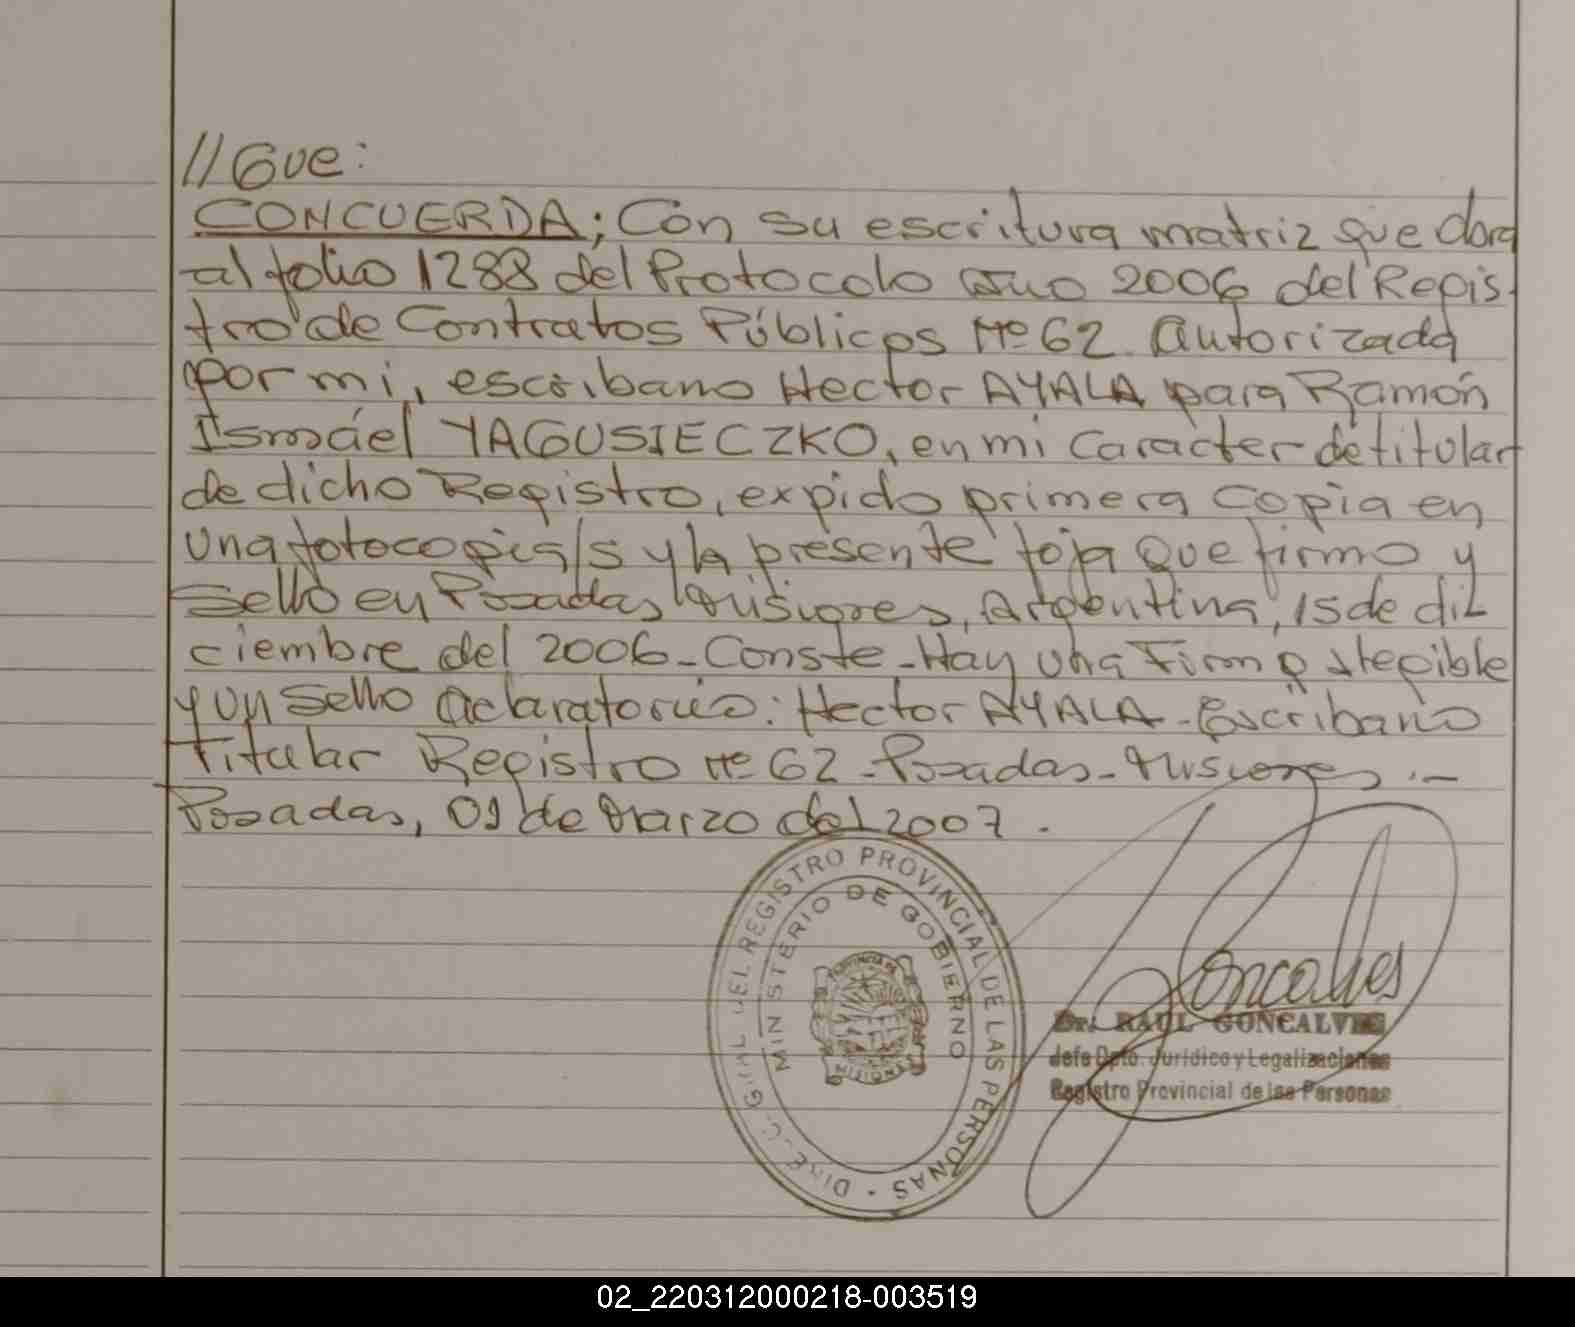 //Gue:
CONCUERDA; Con su escritura matriz que obra
al folio 1288 del Protocolo Año 2006 del Regis-
tro de Contratos Públicos Nº 62 autorizada
por mi, escribano Hector AYALA para Ramón
Ismael YAGUSIECZKO, en mi caracter de titular
de dicho Registro, expido primera copia en
una fotocopia/s y la presente foja que firmo y
sello en Posadas Misiones, Argentina, 15 de di
ciembre del 2006-Conste-Hay una Firma Ilegible
y un sello aclaratorio: Hector AYALA-Escribano
Titular Registro Nº 62-Posadas-Misiones.-
Posadas, 01 de Marzo del 2007.
REGISTRO PROVINCIAL DE LAS PERSONAS
MINISTERIO DE GOBIERNO
PROVINCIA DE
MISIONES
Goncalves
Dr. RAUL GONCALVES
Jefe Dpto. Jurídico y Legalizaciones
Registro Provincial de las Personas
02_220312000218-003519